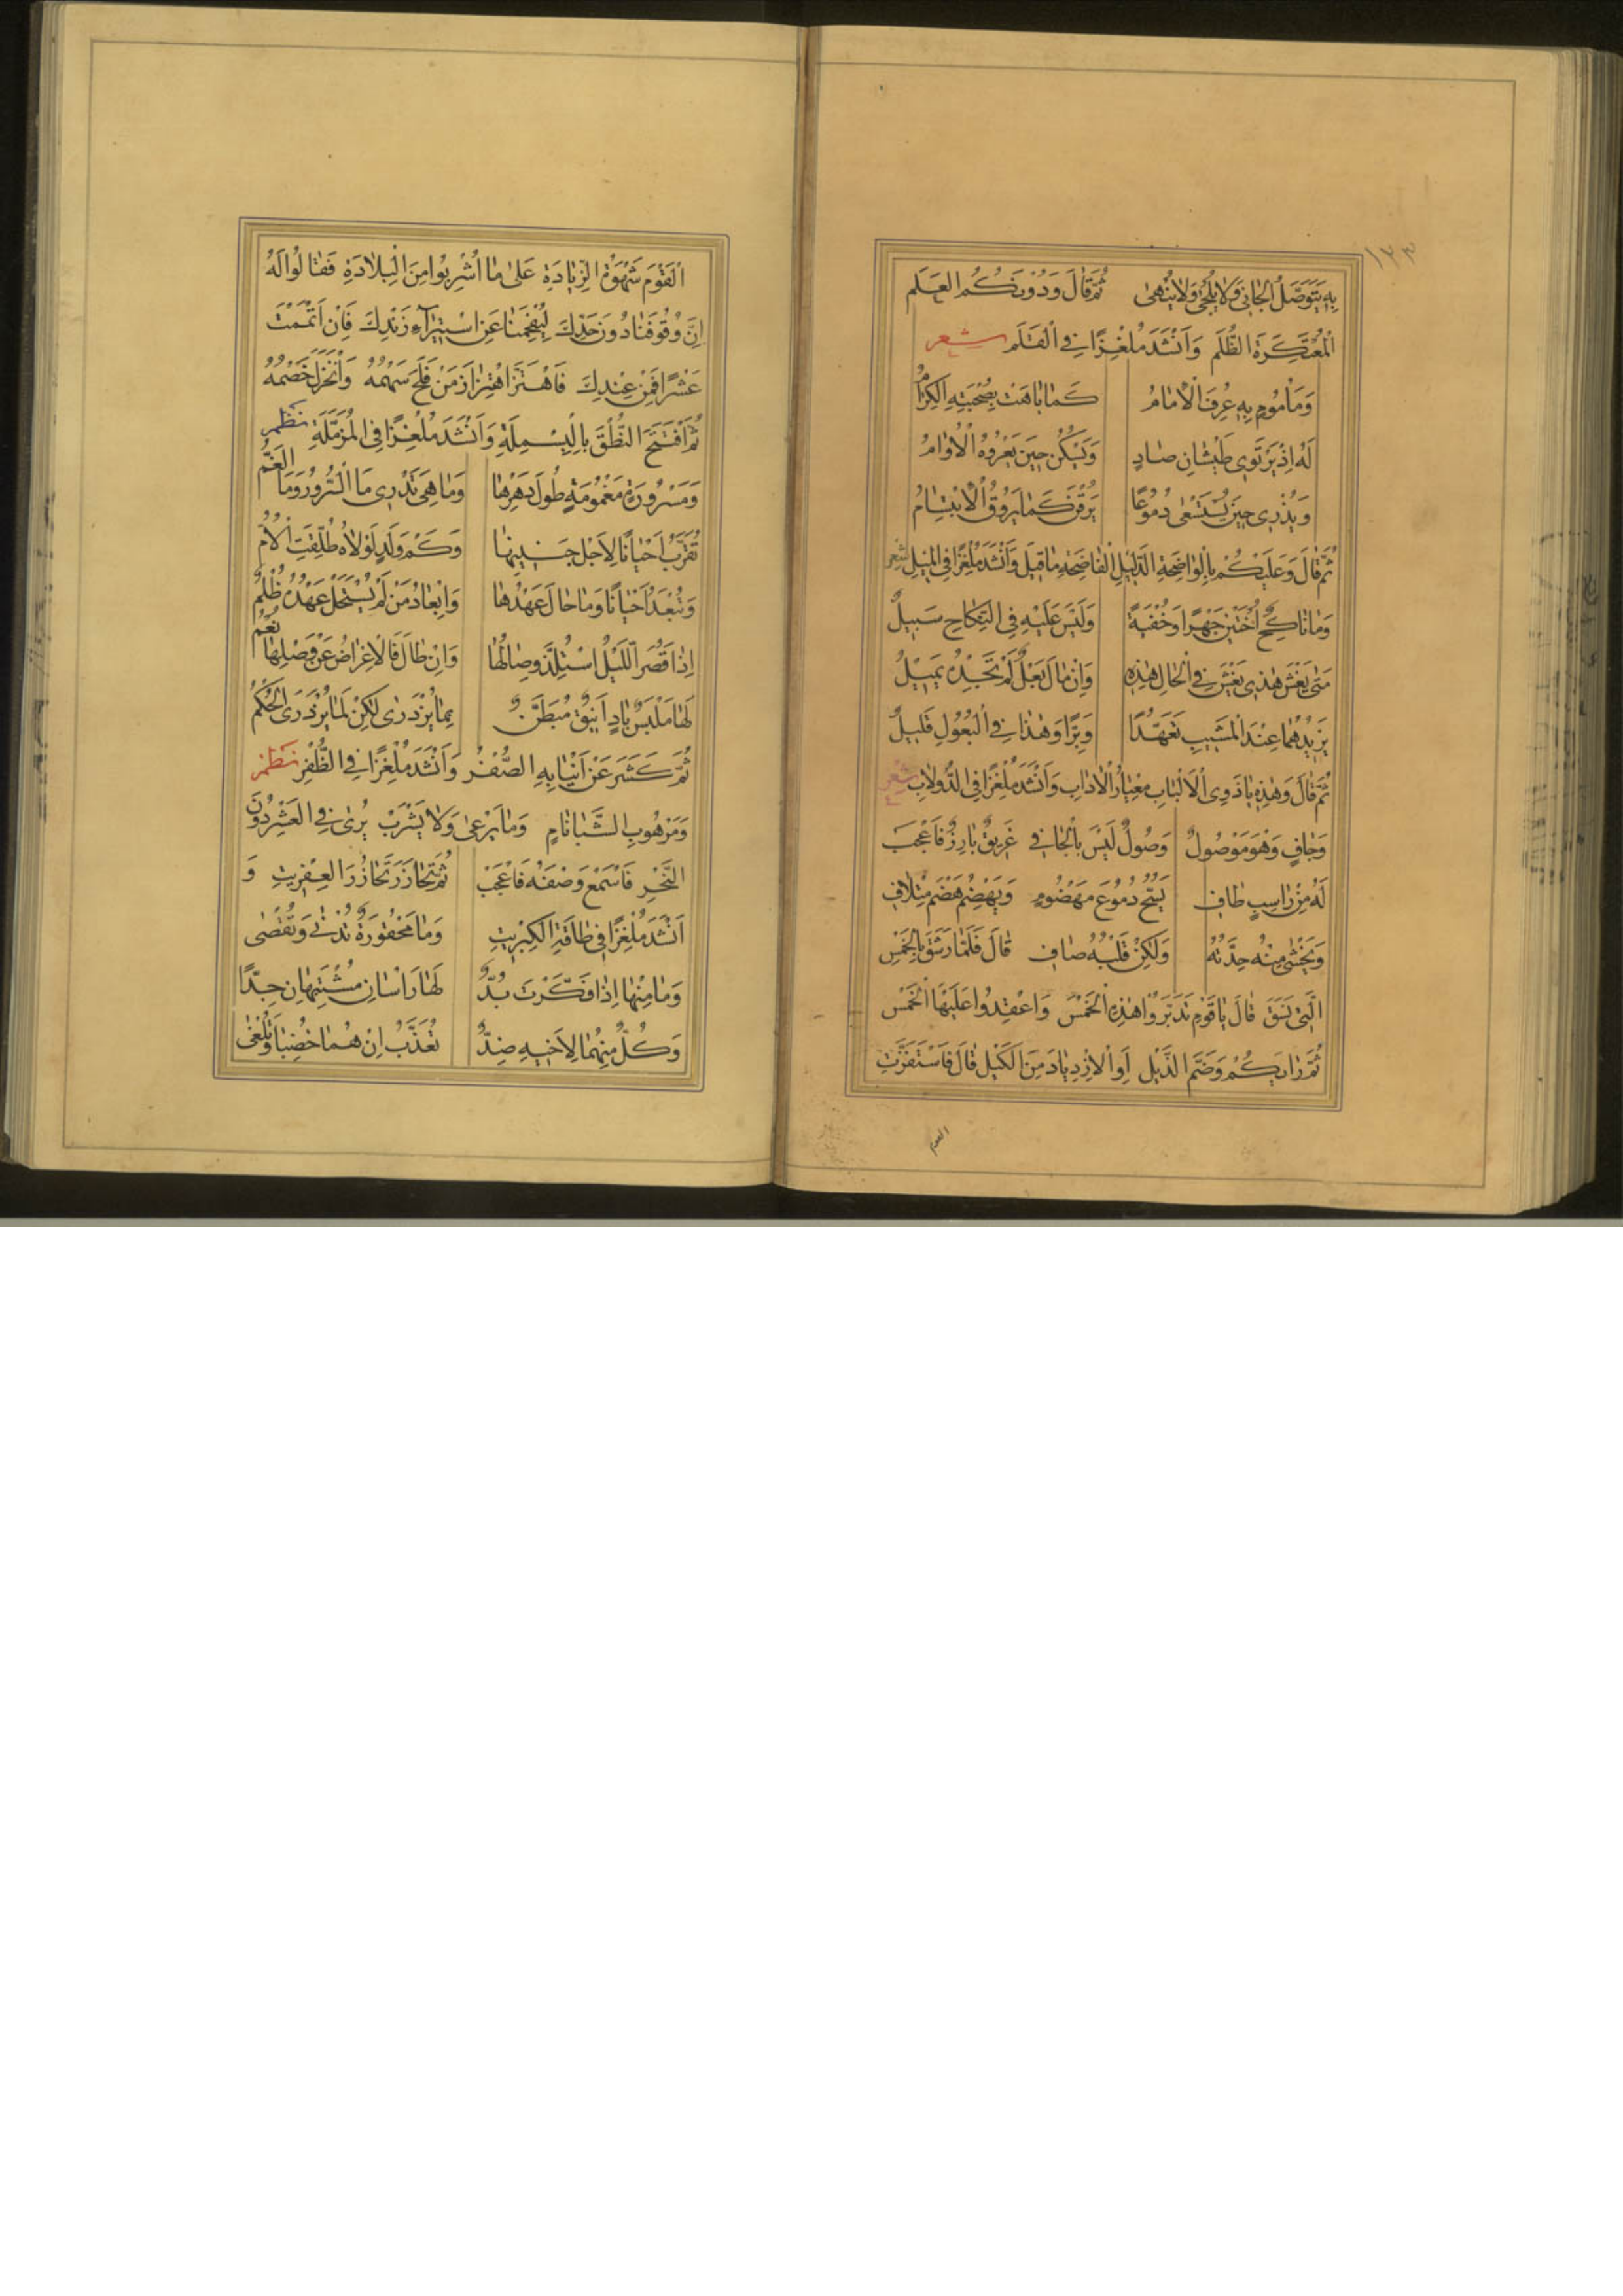 ١٣٣
بِهِ يَتَوَصَّلُ الْجَانِي وَلَا يُلْحَى وَلَا يُنْهَى ثُمَّ قَالَ وَدُونَكُمُ العَلَم
الْمُعْتَكِرَةَ الظُّلَمِ وَاَنْشَدَ مُلْغِزًا فِي الْقَلَمِ شعر
وَمَأْمُومٍ بِهِ عُرِفَ الْاِمَامُ كَمَا بَاهَتْ بِصُحْبَتِهِ الْكِرَامُ
لَهُ اِذْ يَرْتَوِي طَيْشَانِ صَادٍ وَيَسْكُنُ حِينَ يَعْرُوهُ الْاُوَامُ
وَيُذْرِي حِينَ يُسْتَسْعَى دُمُوعًا يَرُقْنَ كَمَا يَرُوقُ الْاِبْتِسَامُ
ثُمَّ قَالَ وَعَلَيْكُمْ بِالْوَاضِحَةِ الدَّلِيلِ الْفَاضِحَةِ مَا قِيلَ وَاَنْشَدَ مُلْغِزًا فِي الْمِيلِ شعر
وَمَا نَاكِحٌ اُخْتَيْنِ جَهْرًا وَخُفْيَةً وَلَيْسَ عَلَيْهِ فِي النِّكَاحِ سَبِيلٌ
مَتَى يَغْشَ هٰذِي يَغْشَ فِي الْحَالِ هٰذِهِ وَاِنْ مَالَ بَعْلٌ لَمْ تَجِدْهُ يَمِيلُ
يَزِيدُهُمَا عِنْدَ الْمَشِيبِ تَعَهُّدًا وَبِرًّا وَهٰذَا فِي الْبُعُولِ قَلِيلٌ
ثُمَّ قَالَ وَهٰذِهِ يَا ذَوِى الْاَلْبَابِ مِعْيَارُ الْاٰدَابِ وَاَنْشَدَ مُلْغِزًا فِي الدُّولَابِ شعر
وَجَافٍ وَهْوَ مَوْصُولٌ وَصُولٌ لَيْسَ بِالْجَافِي غَرِيقٌ بَارِزٌ فَاعْجَبْ
لَهُ مِنْ رَاسِبٍ طَافِ يَسُحُّ دُمُوعَ مَهْضُومٍ وَيَهْضِمُ هَضْمَ مِتْلَافِ
وَيُخْشَى مِنْهُ حِدَّتُهُ وَلٰكِنْ قَلْبُهُ صَافِ قَالَ فَلَمَّا رَشَقَ بِالْخَمْسِ
الَّتِي نَسَقَ قَالَ يَا قَوْمِ تَدَبَّرُوا هٰذِهِ الْخَمْسَ وَاعْقِدُوا عَلَيْهَا الْخَمْسَ
ثُمَّ رَأْيَكُمْ وَضَمَّ الذَّيْلِ اَوِ الْاِزْدِيَادَ مِنَ الْكَيْلِ قَالَ فَاسْتَفَزَّتِ
القوم
الْقَوْمَ شَهْوَةُ الزِّيَادَةِ عَلَى مَا اُشْرِبُوا مِنَ الْبِلَادَةِ فَقَالُوا لَهُ
اِنَّ وُقُوفَنَا دُونَ حَدِّكَ لَيُفْحِمُنَا عَنِ اسْتِيرَاءِ زَنْدِكَ فَاِنْ اَتْمَمْتَ
عَشْرًا فَمِنْ عِنْدِكَ فَاهْتَزَّ اهْتِزَازَ مَنْ فَلَجَ سَهْمُهُ وَانْخَزَلَ خَصْمُهُ
ثُمَّ افْتَتَحَ النُّطْقَ بِالْبَسْمَلَةِ وَاَنْشَدَ مُلْغِزًا فِي الْمُزَمَّلَةِ نظم
وَمَسْرُورَةٍ مَغْمُومَةٍ طُولَ دَهْرِهَا وَمَا هِيَ تَدْرِي مَا السُّرُورُ وَمَا الْغَمُّ
تُقَرَّبُ اَحْيَانًا لِاَجْلِ جَنِينِهَا وَكَمْ وَلَدٍ لَوْلَاهُ طُلِّقَتِ الْاُمُّ
وَتُبْعَدُ اَحْيَانًا وَمَا حَالَ عَهْدُهَا وَاِبْعَادُ مَنْ لَمْ يَسْتَحِلْ عَهْدُهُ ظُلْمٌ
اِذَا قَصُرَ اللَّيْلُ اسْتُلِذَّ وِصَالُهَا وَاِنْ طَالَ فَالْاِعْرَاضُ عَنْ وَصْلِهَا نُعْمُ
لَهَا مَلْبَسٌ بَادٍ اَنِيقٌ مُبَطَّنٌ بِمَا يُزْدَرَى لٰكِنْ لِمَا يُزْدَرَى الْحُكْمُ
ثُمَّ كَشَرَ عَنْ اَنْيَابِهِ الصُّفْرِ وَاَنْشَدَ مُلْغِزًا فِي الظُّفْرِ نظم
وَمَرْهُوبِ الشَّبَا نَامٍ وَمَا يَرْعَى وَلَا يَشْرَبْ يُرَى فِي الْعَشْرِ دُونَ
النَّحْرِ فَاسْمَعْ وَصْفَهُ فَاعْجَبْ ثُمَّ تَخَازَرَ تَخَازُرَ الْعِفْرِيتِ وَ
اَنْشَدَ مُلْغِزًا فِي طَاقَةِ الْكِبْرِيتِ وَمَا مَحْقُورَةٌ تُدْنَى وَتُقْصَى
وَمَا مِنْهَا اِذَا فَكَّرْتَ بُدٌّ لَهَا رَاْسَانِ مُشْتَبِهَانِ جِدًّا
وَكُلٌّ مِنْهُمَا لِاَخِيهِ ضِدٌّ تُعَذَّبُ اِنْ هُمَا خُضِبَا وَتُلْغَى